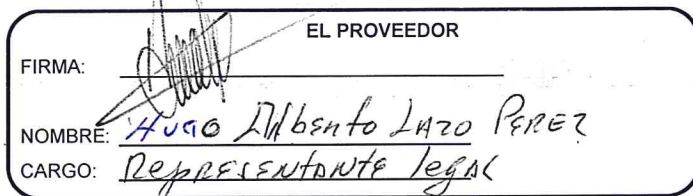 EL PROVEEDOR
FIRMA:
NOMBRE: Hugo Alberto Lazo PEREZ
CARGO: RepRESENTANTE legal